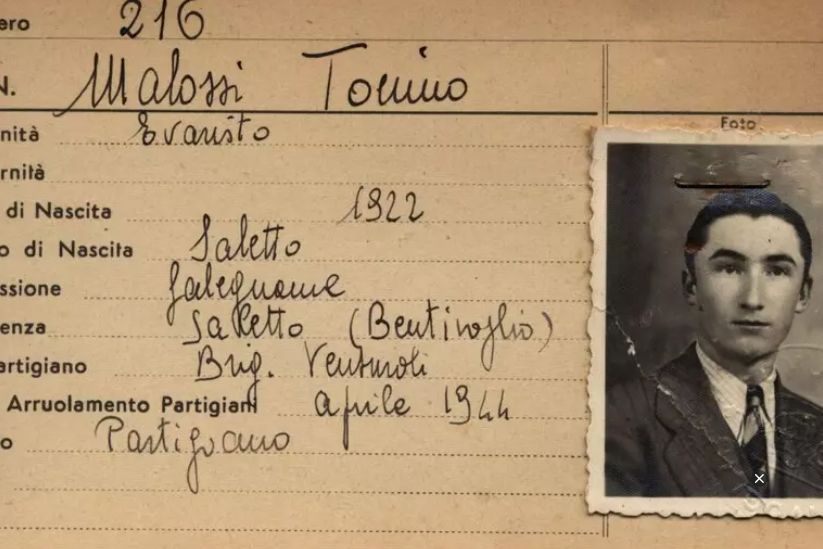 ero 216
N. Malossi Tonino
Foto
nità Evaristo
rnità
di Nascita 1922
o di Nascita Saletto
ssione falegname
enza Saletto (Bentivoglio)
artigiano Brig. Venturoli
Arruolamento Partigiani aprile 1944
o Partigiano